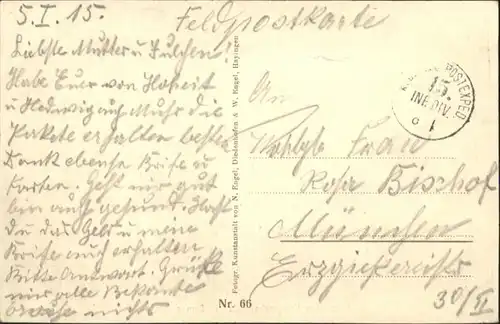 5.I.15.
Feldpostkarte
Liebste Mutter u
Habe Euer von
u Hedwig auch die
Pakete erhalten besten
Dank ebenso Briefe u
Karten. Geht mir gut
bin auch gesund. Hast
Du das Geld u meine
Briefe auch erhalten
Bitte Antwort. Grüße
mir alle Bekannte
nichts
Fotogr. Kunstanstalt von N. Engel, Diedenhofen & W. Engel, Hayingen
Nr. 66
POSTEXPED
INF. DIV.
An
Wohlgb Frau
Rosa Bischof
München
30/II